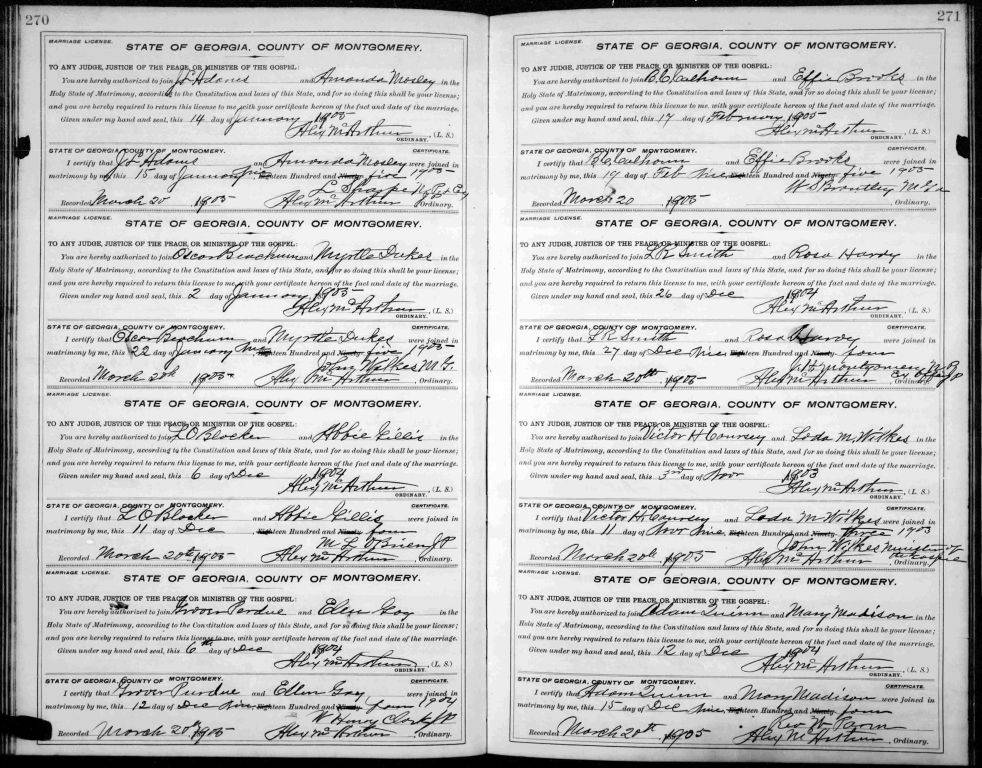 270
MARRIAGE LICENSE.
STATE OF GEORGIA, COUNTY OF MONTGOMERY.
TO ANY JUDGE, JUSTICE OF THE PEACE, OR MINISTER OF THE GOSPEL:
You are hereby authorized to join J L Adams and Amanda Mosley in the
Holy State of Matrimony, according to the Constitution and laws of this State, and for so doing this shall be your license;
and you are hereby required to return this license to me, with your certificate hereon of the fact and date of the marriage.
Given under my hand and seal, this 14 day of January 1905
Alex McArthur (L. S.)
ORDINARY.
STATE OF GEORGIA, COUNTY OF MONTGOMERY. CERTIFICATE.
I certify that J L Adams and Amanda Mosley were joined in
matrimony by me, this 15 day of January Nine Eighteen Hundred and Ninety five 1905
L Sharpe
Recorded March 20 1905 Alex McArthur Ordinary.
MARRIAGE LICENSE.
STATE OF GEORGIA, COUNTY OF MONTGOMERY.
TO ANY JUDGE, JUSTICE OF THE PEACE OR MINISTER OF THE GOSPEL:
You are hereby authorized to join Oscar Beachum and Myrtle Dukes in the
Holy State of Matrimony, according to the Constitution and laws of this State, and for so doing this shall be your license;
and you are hereby required to return this license to me, with your certificate hereon of the fact and date of the marriage.
Given under my hand and seal, this 2 day of January 1905
Alex McArthur (L. S.)
ORDINARY.
STATE OF GEORGIA, COUNTY OF MONTGOMERY. CERTIFICATE.
I certify that Oscar Beachum and Myrtle Dukes were joined in
matrimony by me, this 22 day of January Nine Eighteen Hundred and Ninety five 1905
John Wilkes M. G.
Recorded March 20th 1905 Alex McArthur, Ordinary.
MARRIAGE LICENSE.
STATE OF GEORGIA, COUNTY OF MONTGOMERY.
TO ANY JUDGE, JUSTICE OF THE PEACE OR MINISTER OF THE GOSPEL:
You are hereby authorized to join L O Blocker and Abbie Gillis in the
Holy State of Matrimony, according to the Constitution and laws of this State, and for so doing this shall be your license;
and you are hereby required to return this license to me, with your certificate hereon of the fact and date of the marriage.
Given under my hand and seal, this 6 day of Dec 1904
Alex McArthur (L. S.)
ORDINARY.
STATE OF GEORGIA, COUNTY OF MONTGOMERY. CERTIFICATE.
I certify that L O Blocker and Abbie Gillis were joined in
matrimony by me, this 11 day of Dec Eighteen Hundred and Ninety four
M L O'Brien J P
Recorded March 20th 1905 Alex McArthur, Ordinary.
MARRIAGE LICENSE.
STATE OF GEORGIA, COUNTY OF MONTGOMERY.
TO ANY JUDGE, JUSTICE OF THE PEACE OR MINISTER OF THE GOSPEL:
You are hereby authorized to join Grover Perdue and Elen Gay in the
Holy State of Matrimony, according to the Constitution and laws of this State, and for so doing this shall be your license;
and you are hereby required to return this license to me, with your certificate hereon of the fact and date of the marriage.
Given under my hand and seal, this 6th day of Dec 1904
Alex McArthur (L. S.)
ORDINARY.
STATE OF GEORGIA, COUNTY OF MONTGOMERY. CERTIFICATE.
I certify that Grover Purdue and Ellen Gay, were joined in
matrimony by me, this 12 day of Dec Nine Eighteen Hundred and Ninety four 1904
W Henry Clark J P
Recorded March 20th 1905 Alex McArthur, Ordinary.
271
MARRIAGE LICENSE.
STATE OF GEORGIA, COUNTY OF MONTGOMERY.
TO ANY JUDGE, JUSTICE OF THE PEACE OR MINISTER OF THE GOSPEL:
You are hereby authorized to join B. C. Calhoun and Effie Brooks in the
Holy State of Matrimony, according to the Constitution and laws of this State, and for so doing this shall be your license;
and you are hereby required to return this license to me, with your certificate hereon of the fact and date of the marriage.
Given under my hand and seal, this 17 day of February 1905
Alex McArthur (L. S.)
ORDINARY.
STATE OF GEORGIA, COUNTY OF MONTGOMERY. CERTIFICATE.
I certify that B. C. Calhoun and Effie Brooks were joined in
matrimony by me, this 19 day of Feb Nine Eighteen Hundred and Ninety five 1905
W S Brantley
Recorded March 20 1905 Alex McArthur, Ordinary.
MARRIAGE LICENSE.
STATE OF GEORGIA, COUNTY OF MONTGOMERY.
TO ANY JUDGE, JUSTICE OF THE PEACE OR MINISTER OF THE GOSPEL:
You are hereby authorized to join L R Smith and Rosa Harvy in the
Holy State of Matrimony, according to the Constitution and laws of this State, and for so doing this shall be your license;
and you are hereby required to return this license to me, with your certificate hereon of the fact and date of the marriage.
Given under my hand and seal, this 26 day of Dec 1904
Alex McArthur (L. S.)
ORDINARY.
STATE OF GEORGIA, COUNTY OF MONTGOMERY. CERTIFICATE.
I certify that L R Smith and Rosa Harvy were joined in
matrimony by me, this 27 day of Dec Nine Eighteen Hundred and Ninety four
J. H Montgomery
Recorded March 20th 1905 Alex McArthur Ordinary.
MARRIAGE LICENSE.
STATE OF GEORGIA, COUNTY OF MONTGOMERY.
TO ANY JUDGE, JUSTICE OF THE PEACE OR MINISTER OF THE GOSPEL:
You are hereby authorized to join Victor H Coursey and Loda M Wilkes in the
Holy State of Matrimony, according to the Constitution and laws of this State, and for so doing this shall be your license;
and you are hereby required to return this license to me, with your certificate hereon of the fact and date of the marriage.
Given under my hand and seal, this 3rd day of Nov 1903
Alex McArthur, (L. S.)
ORDINARY.
STATE OF GEORGIA, COUNTY OF MONTGOMERY. CERTIFICATE.
I certify that Victor H Coursey and Loda M Wilkes were joined in
matrimony by me, this 11 day of Nov Nine Eighteen Hundred and Ninety three 1903
John Wilkes Minister of the Gospel
Recorded March 20th 1905 Alex McArthur, Ordinary.
MARRIAGE LICENSE.
STATE OF GEORGIA, COUNTY OF MONTGOMERY.
TO ANY JUDGE, JUSTICE OF THE PEACE OR MINISTER OF THE GOSPEL:
You are hereby authorized to join Adam Quinn and Mary Madison in the
Holy State of Matrimony, according to the Constitution and laws of this State, and for so doing this shall be your license;
and you are hereby required to return this license to me, with your certificate hereon of the fact and date of the marriage.
Given under my hand and seal, this 12 day of Dec 1904
Alex McArthur (L. S.)
ORDINARY.
STATE OF GEORGIA, COUNTY OF MONTGOMERY. CERTIFICATE.
I certify that Adam Quinn and Mary Madison were joined in
matrimony by me, this 15 day of Dec Nine Eighteen Hundred and Ninety four
Rev W
Recorded March 20th 1905 Alex McArthur, Ordinary.